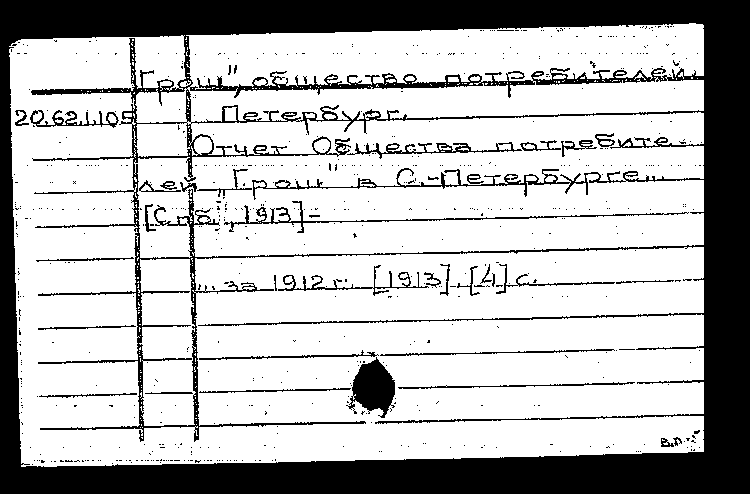 "Грош", общество потребителей.
20.62.1.105 Петербург.
Отчет Общества потребите-
лей "Грош" в С.-Петербурге...
[С.пб., 1913]-
... за 1912 г. [1913]. [4] с.